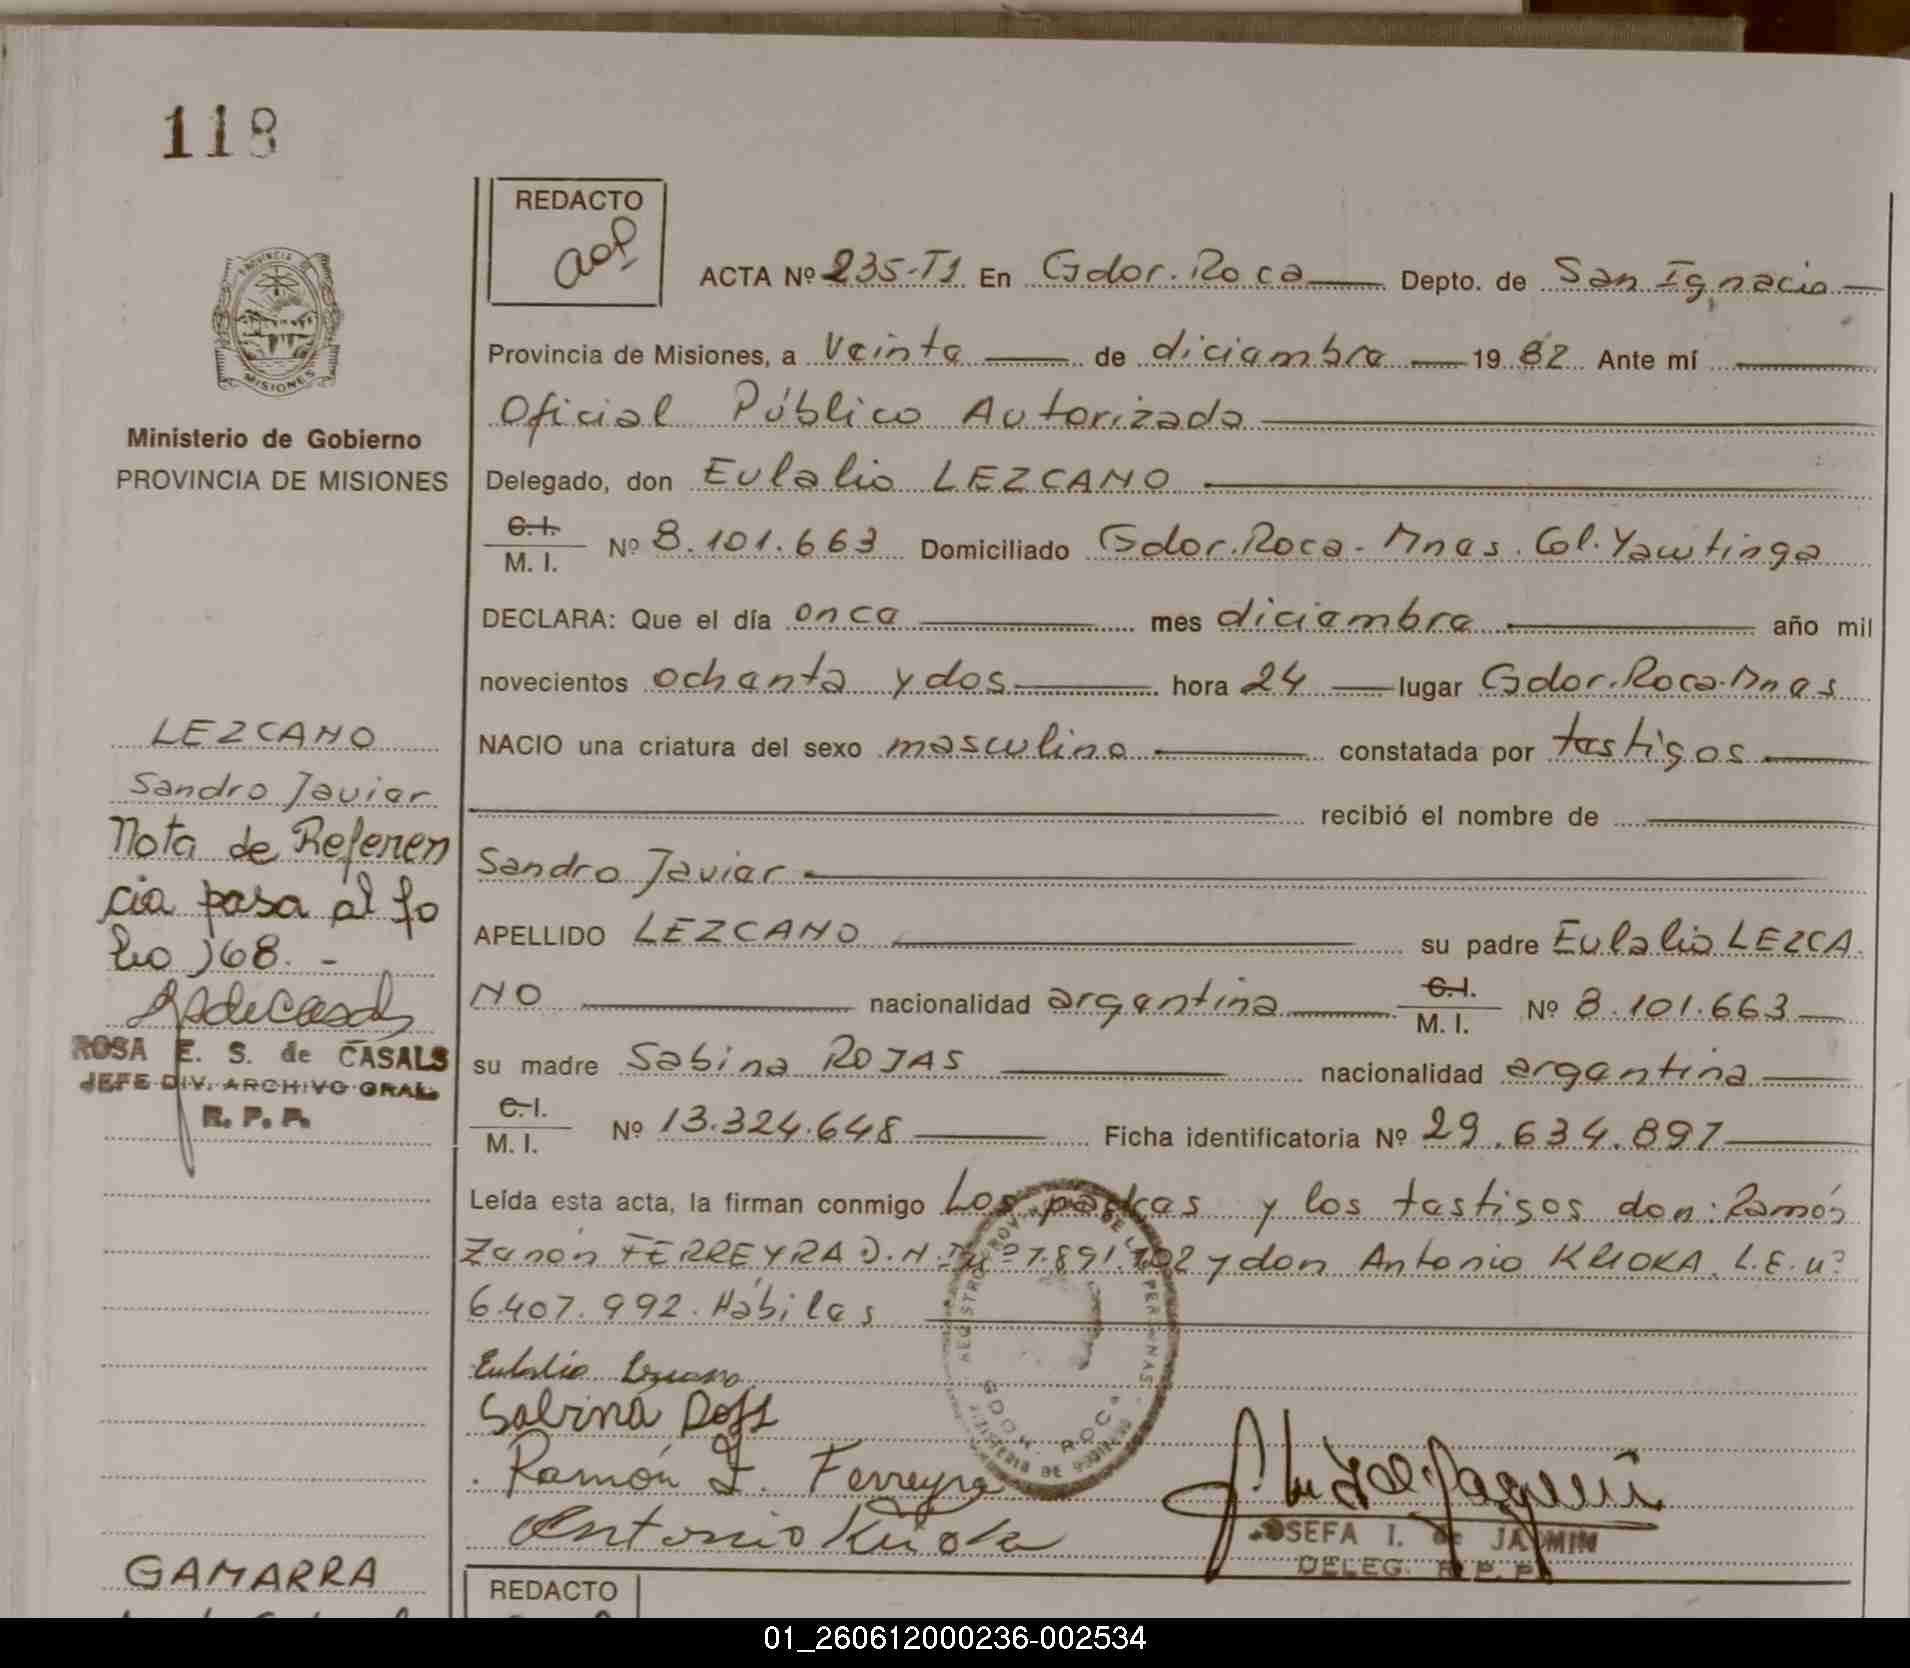 118
REDACTO
ACTA Nº 235-T1 En Gdor. Roca Depto. de San Ignacio
Provincia de Misiones, a Veinte de diciembre 1982 Ante mí
Oficial Público Autorizado
Delegado, don Eulalio LEZCANO
C.I. M. I. Nº 8.101.663 Domiciliado Gdor. Roca - Mnes. Col. Yacutinga
DECLARA: Que el día once mes diciembre año mil
novecientos ochenta y dos hora 24 lugar Gdor. Roca. Mnes
NACIO una criatura del sexo masculino constatada por testigos
recibió el nombre de
Sandro Javier
APELLIDO LEZCANO su padre Eulalio LEZCA
NO nacionalidad argentina C.I. M. I. Nº 8.101.663
su madre Sabina ROJAS nacionalidad argentina
C.I. M. I. Nº 13.324.648 Ficha identificatoria Nº 29.634.897
Leída esta acta, la firman conmigo Los padres y los testigos don: Ramón
Zenón FERREYRA D.N.I. nº 7.891.702 y don Antonio KRIOKA L.E. nº
6.407.992. Hábiles
Eulalio Lezcano
Sabina
Ramón Z. Ferreyra
Antonio
JOSEFA I. de JASMIN
DELEG. R. P. P.
MISIONES
Ministerio de Gobierno
PROVINCIA DE MISIONES
LEZCANO
Sandro Javier
Nota de Referen
cia pasa al fo
lio 168. -
ROSA E. S. de CASALS
JEFE DIV. ARCHIVO GRAL.
R. P. P.
GAMARRA
REDACTO
01_260612000236-002534